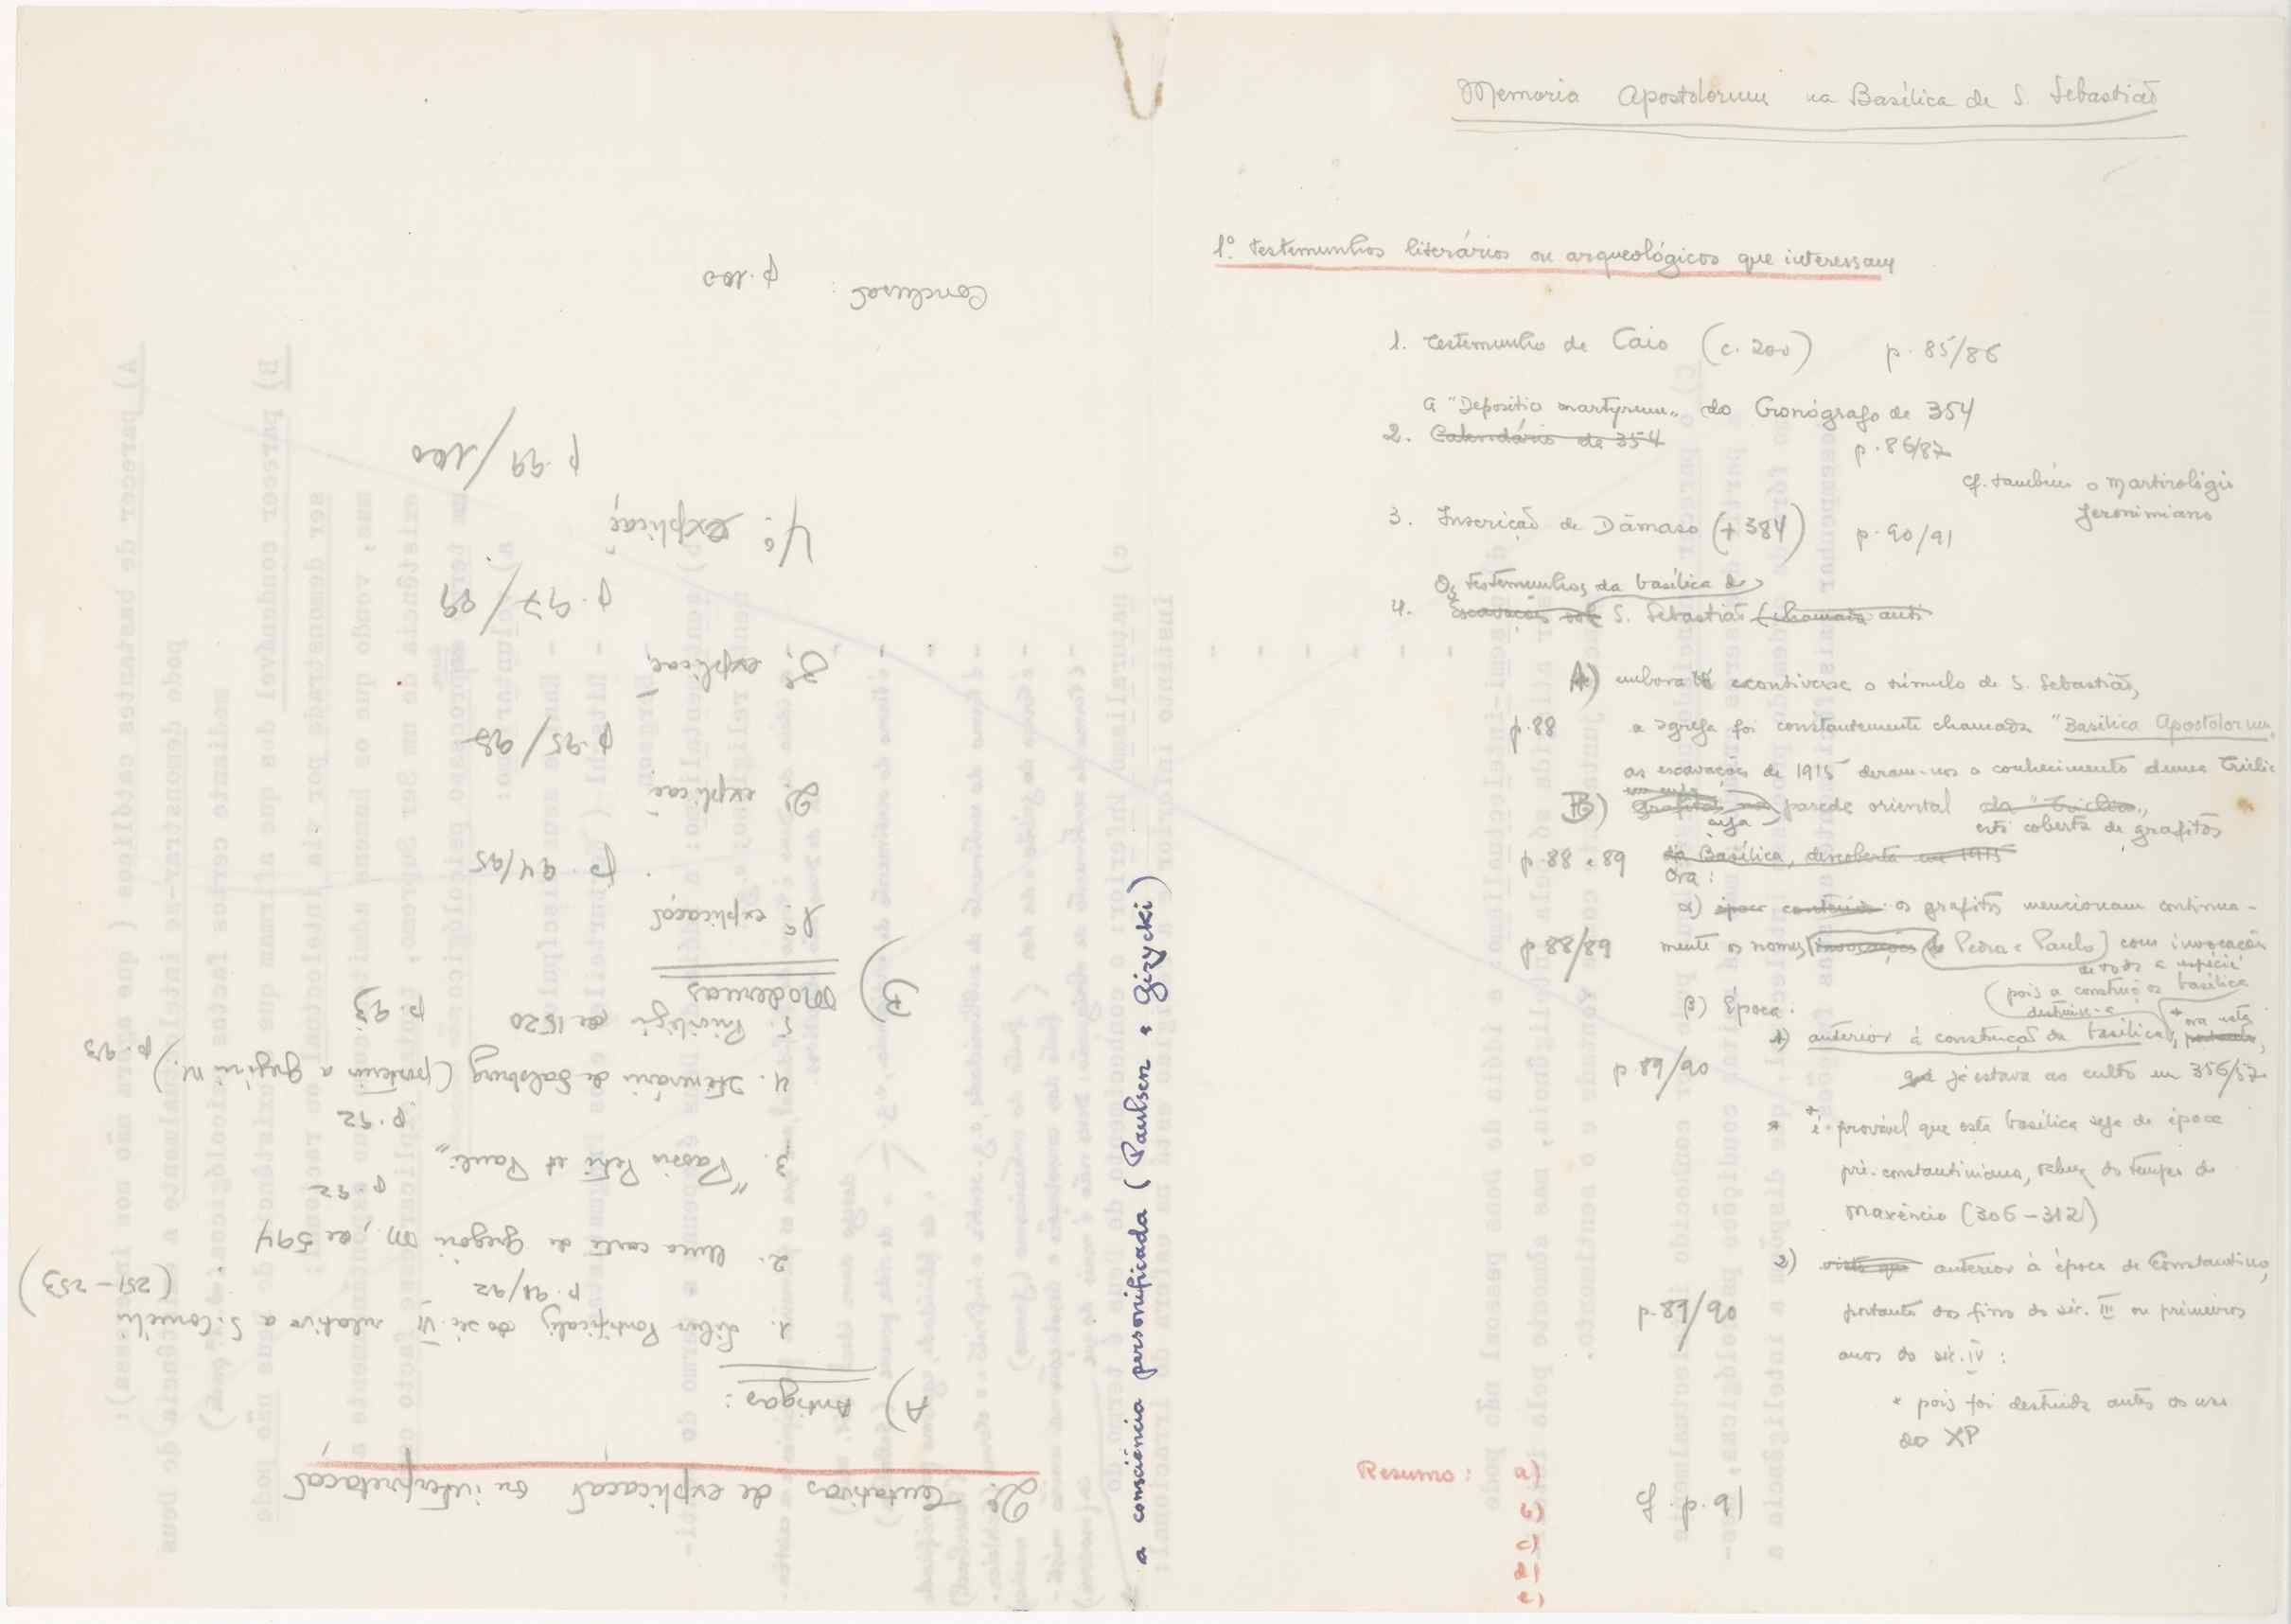 Memoria Apostolorum na Basílica de S. Sebastião
1º. testemunhos literários ou arqueológicos que interessam
1. testemunho de Caio (c. 200) p. 85/86
a "Depositio martyrum" do Cronógrafo de 354
2. Calendário de 354 p. 86/87
cf. também o martirológio
Jeronimiano
3. Inscrição de Dâmaso (+ 384) p. 90/91
Os testemunhos da basílica de
4. Escavações S. Sebastião (chamada anti
A) embora contivesse o túmulo de S. Sebastião,
p. 88 a igreja foi constantemente chamada "Basilica Apostolorum"
as escavações de 1915 deram-nos o conhecimento duma
B) grafitos na parede oriental da "
cuja está coberta de grafitos
p. 88 e 89 da Basílica, descoberta em 1915
Ora:
α) os grafitos mencionam continua-
p 88/89 mente os nomes (invocações de Pedro e Paulo) com invocação
de toda a espécie
β) Época: (pois a construção basílica
destruiu-a
1) anterior à construção da basílica, portanto, * ora esta
p. 89/90 que já estava ao culto em 356/57
* é provável que esta basílica seja de época
pré-constantiniana, talvez do tempo de
Maxêncio (306-312)
2) visto que anterior à época de Constantino,
p. 89/90 portanto dos fins do séc. III ou primeiros
anos do séc. IV:
* pois foi destruída antes do uso
do XP
Resumo: a)
b)
c)
d)
e)
a consciência personificada (Paulsen e Gizycki)
2º. Tentativas de explicação ou interpretação
A) Antigas:
1. Liber Pontificalis do séc. VI relativo a S. Cornélio
(251-253)
p. 91/92
2. Uma carta de Gregório M, de 594
p 92
3. "Passio Petri et Pauli"
p. 92
4. Itinerário de Salzburg (posterior a Gregório M.)
p. 93
5. Privilégio de 1520 p. 93
B) Modernas
1ª explicação p. 94/95
2ª explicaç. p. 95/98
3ª explicaç. p. 97/99
4ª explicaç p. 99/100
Conclusão: p. 100